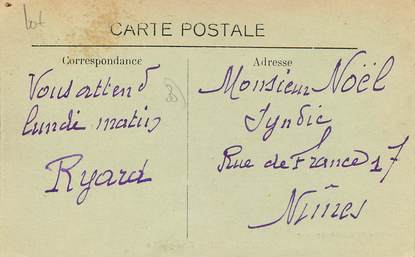 Lot
CARTE POSTALE
Correspondance
Adresse
Vous attend
lundi matin
Ryard
Monsieur Noël
Syndic
Rue de France 17
Nîmes